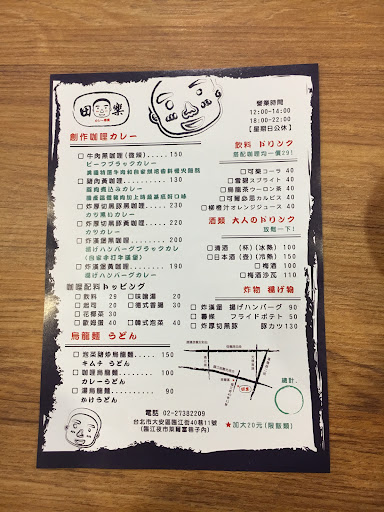 田樂
營業時間
12:00-14:00
18:00-22:00
【星期日公休】
創作咖哩カレー
牛肉黑咖哩(微辣)..... 150
ビーフブラックカレー
雞肉黃咖哩........... 130
炸厚切黑豚黑咖哩..... 200
カツ黒いカレー
炸厚切黑豚黃咖哩..... 220
カツカレー
炸漢堡黑咖哩......... 240
揚げハンバーグブラックカレー
(自家手打牛漢堡)
炸漢堡黃咖哩......... 210
揚げハンバーグカレー
飲料 ドリンク
搭配咖哩均一價29!
可樂コーラ 40
雪碧スプライト 40
烏龍茶ウーロン茶 40
可爾必思カルピス 40
柳橙汁オレンジジュース 40
酒類 大人のドリンク
放鬆一下!
清酒 (杯)(冰熱) 100
日本酒 (壺)(冷熱) 150
梅酒 100
梅酒沙瓦 110
炸物 揚げ物
炸漢堡 揚げハンバーグ 90
薯條 フライドポテト 50
炸厚切黑豚 豚カツ130
咖哩配料トッピング
飲料 29
味噌湯 20
起司 20
德式香腸 30
花椰菜 30
歐姆蛋 40
韓式泡菜 40
烏龍麵 うどん
泡菜豬炒烏龍麵..... 150
キムチ うどん
咖哩烏龍麵......... 100
カレーうどん
湯烏龍麵........... 90
かけうどん
總計.
電話 02-27382209
台北市大安區臨江街40巷11號
(臨江夜市萊爾富巷子內)
★加大20元(限飯類)